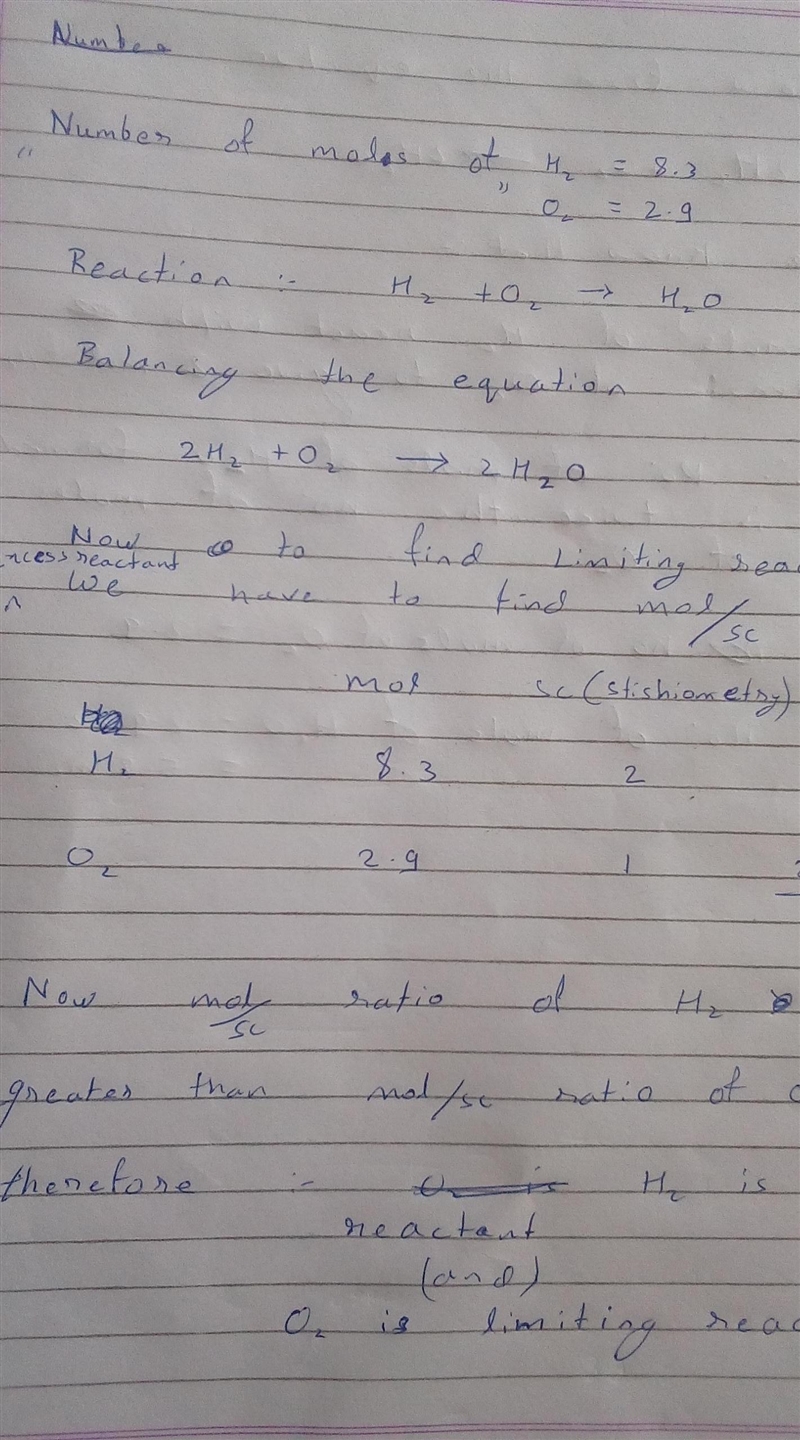 Number
Number of moles of H₂ = 8.3
" " O₂ = 2.9
Reaction :- H₂ + O₂ → H₂O
Balancing the equation
2H₂ + O₂ → 2H₂O
Now to find Limiting
reactant
We have to find mol/sc
mol sc (stishiometry)
H₂ 8.3 2
O₂ 2.9 1
Now mol/sc ratio of H₂
greater than mol/sc ratio of
therefore :- H₂ is
reactant
(and)
O₂ is limiting